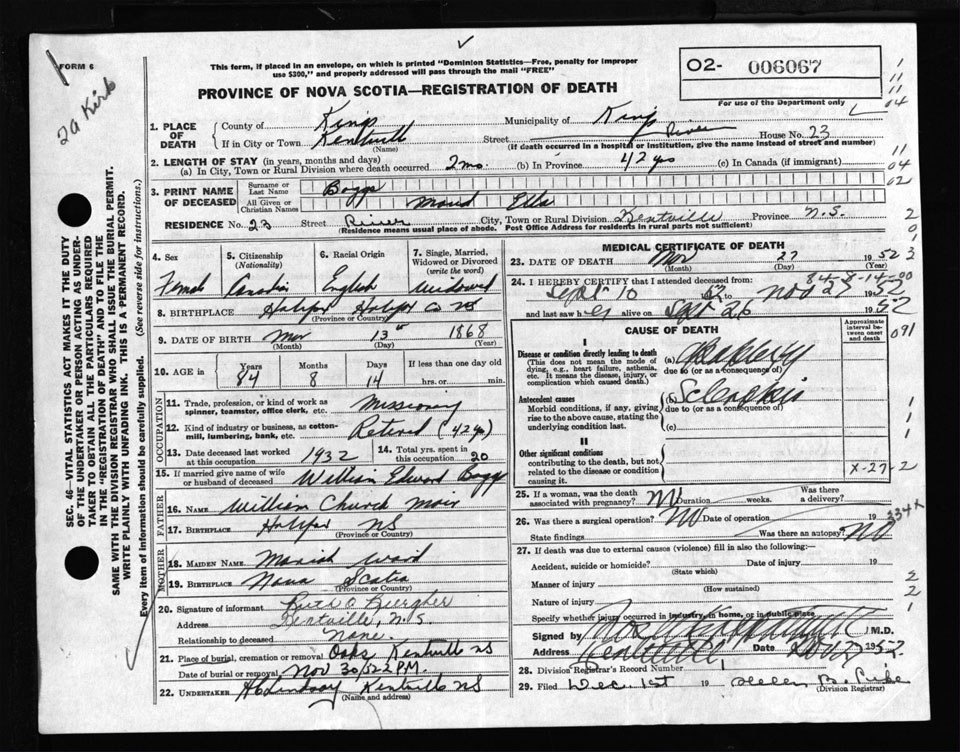 FORM 6
2a Kirk
This form, if placed in an envelope, on which is printed "Dominion Statistics—Free, penalty for improper
use $300," and properly addressed will pass through the mail "FREE"
O2- 006067
For use of the Department only
PROVINCE OF NOVA SCOTIA—REGISTRATION OF DEATH
SEC. 46—VITAL STATISTICS ACT MAKES IT THE DUTY
OF THE UNDERTAKER OR PERSON ACTING AS UNDER-
TAKER TO OBTAIN ALL THE PARTICULARS REQUIRED
IN THE "REGISTRATION OF DEATH" AND TO FILE THE
SAME WITH THE DIVISION REGISTRAR WHO SHALL ISSUE THE BURIAL PERMIT.
WRITE PLAINLY WITH UNFADING INK. THIS IS A PERMANENT RECORD.
Every item of information should be carefully supplied. (See reverse side for instructions.)
1. PLACE OF DEATH County of Kings Municipality of Kings
If in City or Town Kentville (Name) Street River House No. 23
(If death occurred in a hospital or institution, give the name instead of street and number)
2. LENGTH OF STAY (in years, months and days)
(a) In City, Town or Rural Division where death occurred 2 mo. (b) In Province 42 yrs (c) In Canada (if immigrant)
3. PRINT NAME OF DECEASED Surname or Last Name Boggs
All Given or Christian Names Maud Ella
RESIDENCE No. 23 Street River City, Town or Rural Division Kentville Province N.S.
(Residence means usual place of abode. Post Office Address for residents in rural parts not sufficient)
4. Sex Female
5. Citizenship (Nationality) Canadian
6. Racial Origin English
7. Single, Married, Widowed or Divorced (write the word) Widowed
8. BIRTHPLACE Halifax Halifax Co NS
(Province or Country)
9. DATE OF BIRTH Mar 13th 1868
(Month) (Day) (Year)
10. AGE in Years 84 Months 8 Days 14 If less than one day hrs. or min.
OCCUPATION
11. Trade, profession, or kind of work as spinner, teamster, office clerk, etc. Missionary
12. Kind of industry or business, as cotton-mill, lumbering, bank, etc. Retired (42 yrs)
13. Date deceased last worked at this occupation 1932 14. Total yrs. spent in this occupation 20
15. If married give name of wife or husband of deceased William Edward Boggs
FATHER
16. NAME William Church Moir
17. BIRTHPLACE Halifax NS
(Province or Country)
MOTHER
18. MAIDEN NAME Mariah Ward
19. BIRTHPLACE Nova Scotia
(Province or Country)
20. Signature of informant
Address Kentville, N.S.
Relationship to deceased None.
21. Place of burial, cremation or removal Oaks Kentville NS
Date of burial or removal Nov 30/52 2 P.M.
22. UNDERTAKER Lindsay Kentville NS
(Name and address)
MEDICAL CERTIFICATE OF DEATH
23. DATE OF DEATH Nov 27 1952
(Month) (Day) (Year)
84-8-14-00
24. I HEREBY CERTIFY that I attended deceased from:
Sept 10 52 to Nov 27 1952
and last saw her alive on Sept 26 1952
CAUSE OF DEATH
Approximate interval between onset and death
I
Disease or condition directly leading to death
(This does not mean the mode of dying, e.g., heart failure, asthenia, etc. It means the disease, injury, or complication which caused death.)
(a)
due to (or as a consequence of)
Antecedent causes
Morbid conditions, if any, giving rise to the above cause, stating the underlying condition last.
(b) Sclerosis
due to (or as a consequence of)
(c)
II
Other significant conditions
contributing to the death, but not related to the disease or condition causing it.
X-27-2
25. If a woman, was the death associated with pregnancy? No Duration weeks. Was there a delivery?
26. Was there a surgical operation? No Date of operation 19
334X
State findings Was there an autopsy? No
27. If death was due to external causes (violence) fill in also the following:—
Accident, suicide or homicide? Date of injury 19
(State which)
Manner of injury
(How sustained)
Nature of injury
Specify whether injury occurred in industry, in home, or in public place
Signed by M.D.
Address Kentville Date 1952
28. Division Registrar's Record Number
29. Filed Dec. 1st 19 Helen B.
(Division Registrar)
1
1
11
04
11
04
02
2
0
1
3
2
091
1
1
1
2
2
1